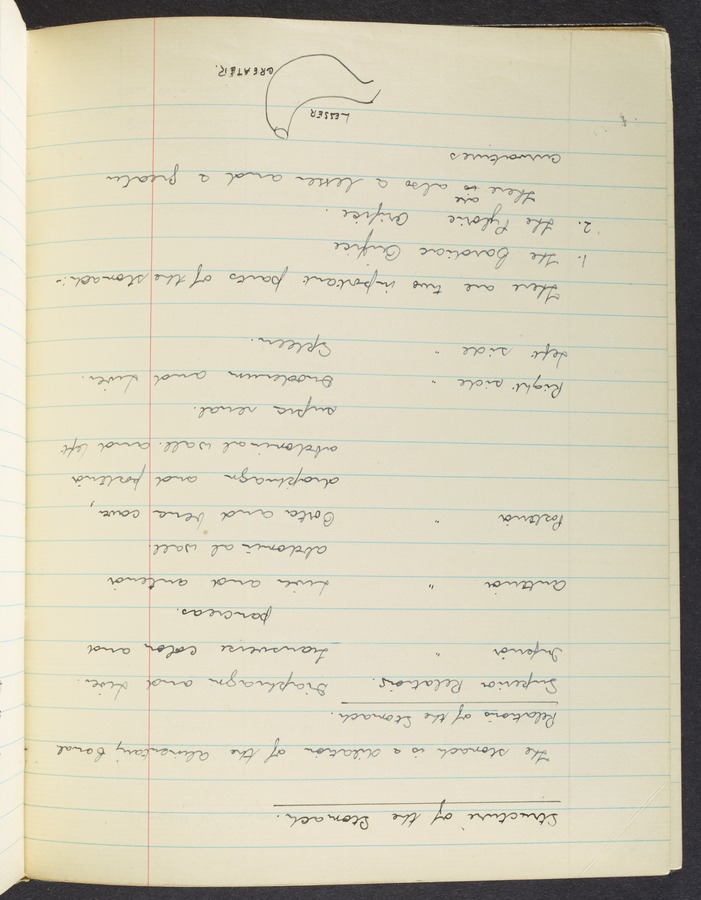 Structure of the Stomach.
The stomach is a dilation of the Alimentary Canal
Relations of the Stomach.
Superior Relations. Diaphragm and Liver.
Inferior " transverse colon and
pancreas.
Anterior " Liver and anterior
abdominal wall.
Posterior " Aorta and vena cava,
diaphragm and posterior
abdominal wall. and left
supra renal.
Right side " Duodenum and Liver.
Left side " Spleen.
There are two important parts of the stomach:-
1. The Cardiac Orifice
2. The Pyloric Orifice.
There is are also a lesser and a greater
curvatures
LESSER
GREATER.